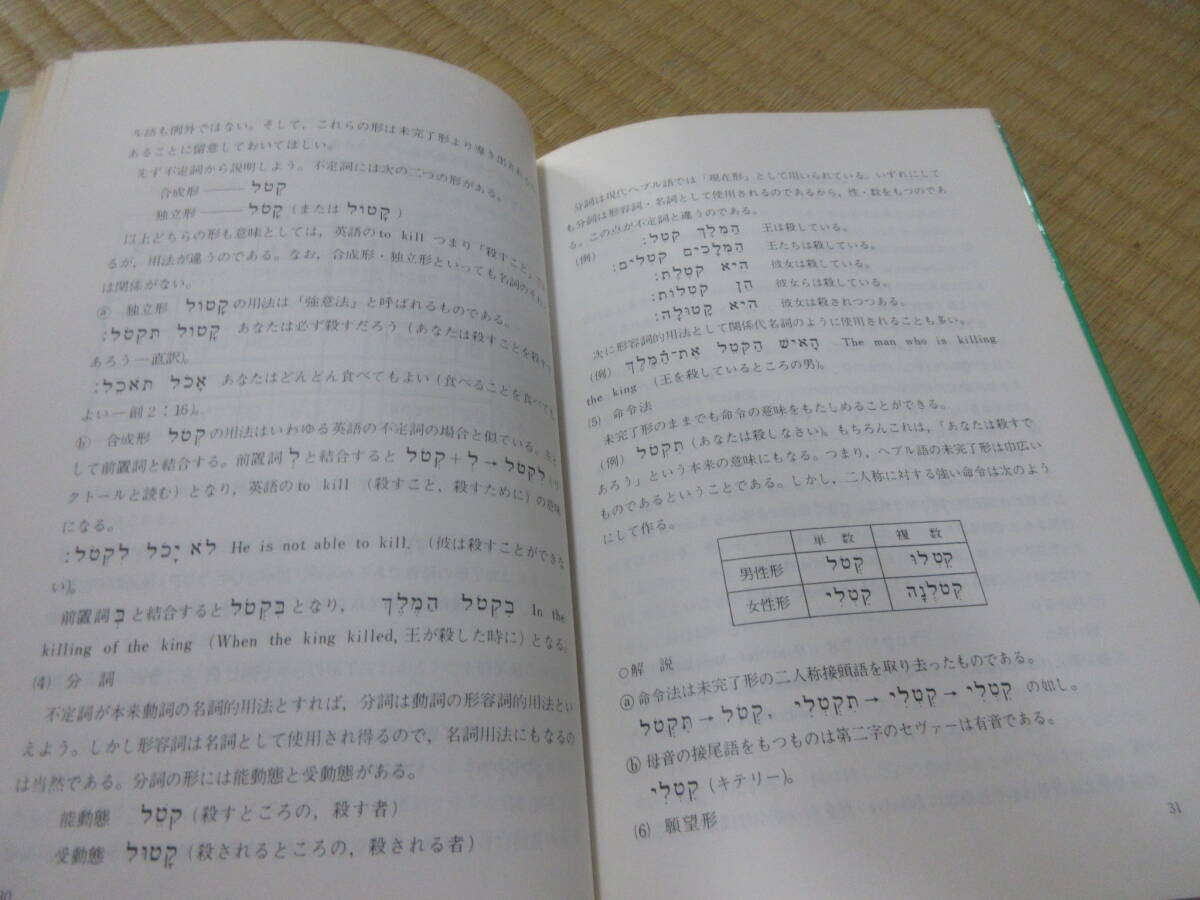 ル語も例外ではない。そして，これらの形は未完了形より導き出され
あることに留意しておいてほしい。
先ず不定詞から説明しよう。不定詞には次の二つの形がある。
合成形 ―― קְטֹל
独立形 ―― קָטֹל (または קָטוֹל)
以上どちらの形も意味としては，英語のto kill つまり「殺すこと」
るが，用法が違うのである。なお，合成形・独立形といっても名詞の
は関係がない。
ⓐ 独立形 קָטוֹל の用法は「強意法」と呼ばれるものである。
קָטוֹל תִּקְטֹל: あなたは必ず殺すだろう (あなたは殺すことを殺す
あろう―直訳)。
אָכֹל תֹּאכֵל: あなたはどんどん食べてもよい (食べることを食べても
よい―創2：16)。
ⓑ 合成形 קְטֹל の用法はいわゆる英語の不定詞の場合と似ている。
して前置詞と結合する。前置詞 לְ と結合すると לִקְטֹל ← לְ + קְטֹל (リ
クトールと読む) となり，英語のto kill (殺すこと，殺すために) の意味
になる。
לֹא יָכֹל לִקְטֹל: He is not able to kill, (彼は殺すことができな
い)。
前置詞 בְּ と結合すると בִּקְטֹל となり， בִּקְטֹל הַמֶּלֶךְ In the
killing of the king (When the king killed, 王が殺した時に) となる。
(4) 分 詞
不定詞が本来動詞の名詞的用法とすれば，分詞は動詞の形容詞的用法とい
えよう。しかし形容詞は名詞として使用され得るので，名詞用法にもなるの
は当然である。分詞の形には能動態と受動態がある。
能動態 קֹטֵל (殺すところの，殺す者)
受動態 קָטוּל (殺されるところの，殺される者)
30
分詞は現代ヘブル語では「現在形」として用いられている。いずれにして
も分詞は形容詞・名詞として使用されるのであるから，性・数をもつのであ
る。この点が不定詞と違うのである。
(例) הַמֶּלֶךְ קֹטֵל: 王は殺している。
הַמְּלָכִים קֹטְלִים: 王たちは殺している。
הִיא קֹטֶלֶת: 彼女は殺している。
הֵן קֹטְלוֹת: 彼女らは殺している。
הִיא קְטוּלָה: 彼女は殺されつつある。
次に形容詞的用法として関係代名詞のように使用されることも多い。
(例) הָאִישׁ הַקֹּטֵל אֶת־הַמֶּלֶךְ The man who is killing
the king (王を殺しているところの男)。
(5) 命令法
未完了形のままでも命令の意味をもたしめることができる。
(例) תִּקְטֹל (あなたは殺しなさい)。もちろんこれは，「あなたは殺すで
あろう」という本来の意味にもなる。つまり，ヘブル語の未完了形は巾広い
ものであるということである。しかし，二人称に対する強い命令は次のよう
にして作る。
単 数 複 数
男性形 קְטֹל קִטְלוּ
女性形 קִטְלִי קְטֹלְנָה
○解 説
ⓐ命令法は未完了形の二人称接頭語を取り去ったものである。
תִּקְטֹל → קְטֹל， תִּקְטְלִי → קְטְלִי → קִטְלִי の如し。
ⓑ母音の接尾語をもつものは第二字のセヴァーは有音である。
קִטְלִי (キテリー)。
(6) 願望形
31